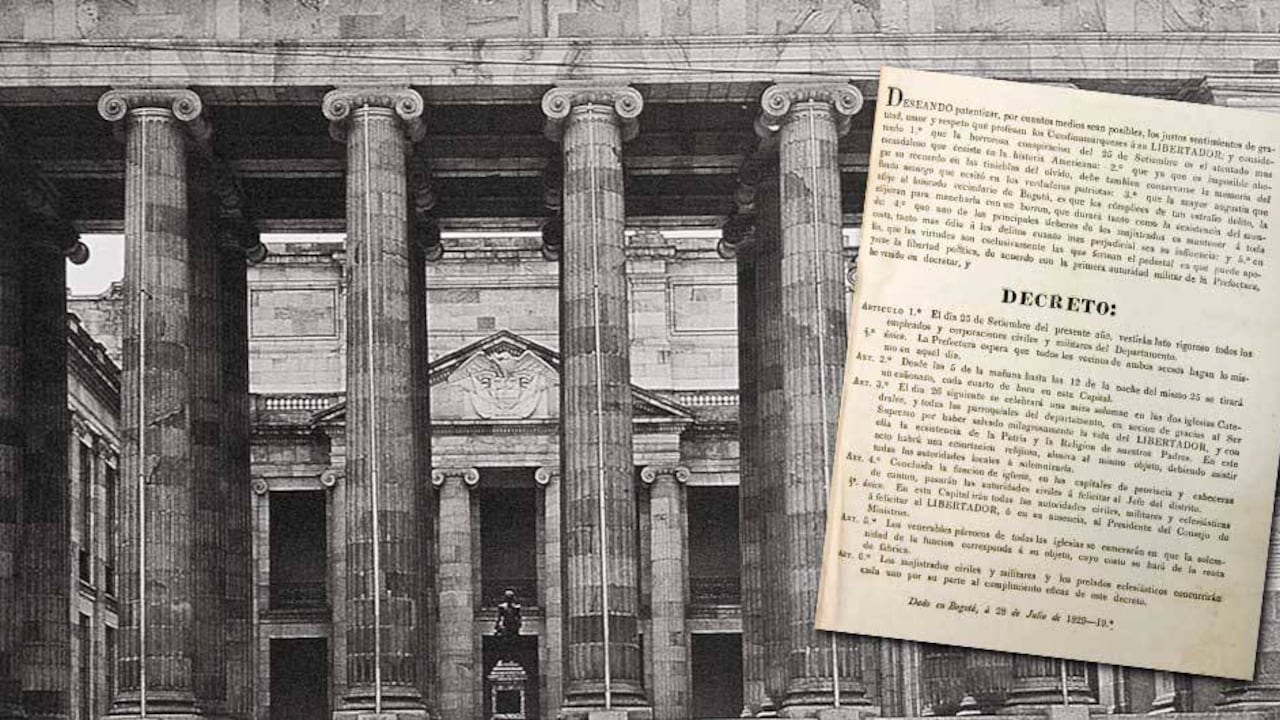 DESEANDO patentizar, por cuantos medios sean posibles, los justos sentimientos de gra-
titud, amor y respeto que profesan los Cundinamarqueses á su LIBERTADOR, y conside-
rando 1.º que la horrorosa conspiracion del 25 de Setiembre es el atentado mas
escandaloso que ecsiste en la historia Americana: 2.º que ya que es imposible aho-
gar su recuerdo en las tinieblas del olvido, debe tambien conservarse la memoria del
llanto amargo que ecsitó en los verdaderos patriotas: 3.º que la mayor angustia que
aflije al honrado vecindario de Bogotá, es que los cómplices de tan estraño delito, la
elijieran para mancharla con un borron, que durará tanto como la ecsistencia del mun-
do: 4.º que uno de los principales deberes de los magistrados es mantener á toda
costa, tanto mas ódio á los delitos cuanto mas perjudicial sea su influencia: y 5.º en
fin, que las virtudes son esclusivamente las que forman el pedestal en que puede apo-
yarse la libertad política, de acuerdo con la primera autoridad militar de la Prefectura,
he venido en decretar, y
DECRETO:
ARTICULO 1.º El dia 25 de Setiembre del presente año, vestirán luto rigoroso todos los
empleados y corporaciones civiles y militares del Departamento.
§.º único. La Prefectura espera que todos los vecinos de ambos secsos hagan lo mis-
mo en aquel dia.
ART. 2.º Desde las 5 de la mañana hasta las 12 de la noche del mismo 25 se tirará
un cañonazo, cada cuarto de hora en esta Capital.
ART. 3.º El dia 26 siguiente se celebrará una misa solemne en las dos iglesias Cate-
drales, y todas las parroquiales del departamento, en accion de gracias al Ser
Supremo por haber salvado milagrosamente la vida del LIBERTADOR, y con
ella la ecsistencia de la Patria y la Religion de nuestros Padres. En este
acto habrá una ecsortacion relijiosa, alusiva al mismo objeto, debiendo asistir
todas las autoridades locales á solemnizarla.
ART. 4.º Concluida la funcion de iglesia, en las capitales de provincia y cabeceras
de canton, pasarán las autoridades civiles á felicitar al Jefe del distrito.
§º. único. En esta Capital irán todas las autoridades civiles, militares y eclesiásticas
á felicitar al LIBERTADOR, ó en su ausencia, al Presidente del Consejo de
Ministros.
ART. 5.º Los venerables párrocos de todas las iglesias se esmerarán en que la solem-
nidad de la funcion corresponda á su objeto, cuyo costo se hará de la renta
de fábrica.
ART. 6.º Los magistrados civiles y militares y los prelados eclesiásticos concurrirán
cada uno por su parte al cumplimiento eficas de este decreto.
Dado en Bogotá, á 28 de Julio de 1829—19.º